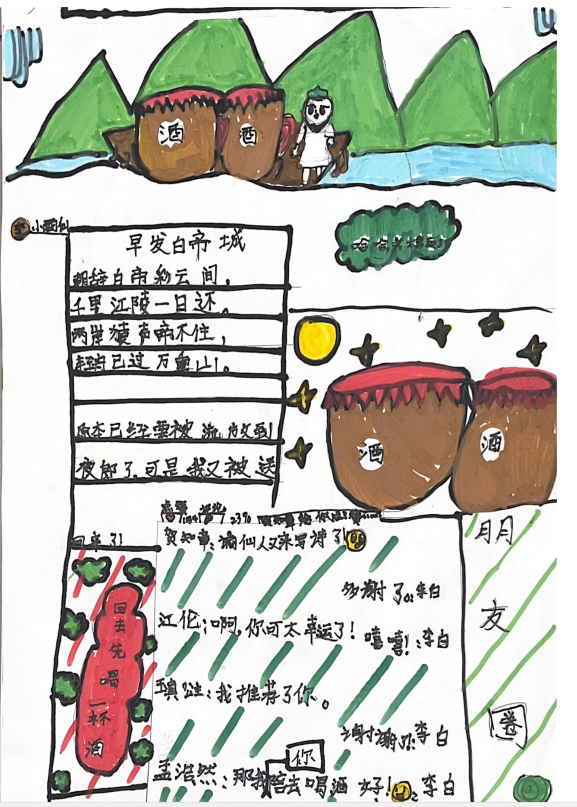 酒
酒
小酒仙
早发白帝城
朝辞白帝彩云间，
千里江陵一日还。
两岸猿声啼不住，
轻舟已过万重山。
原本已经要被流放到
夜郎了，可是我又被送
回来了！
酒
酒
贺知章：谪仙人又来写诗了！
多谢了。：李白
汪伦：啊，你可太幸运了！
嘻嘻！：李白
我推荐了你。
谢谢你：李白
孟浩然：那我陪你去喝酒
好！：李白
回去先喝一杯酒
朋友圈